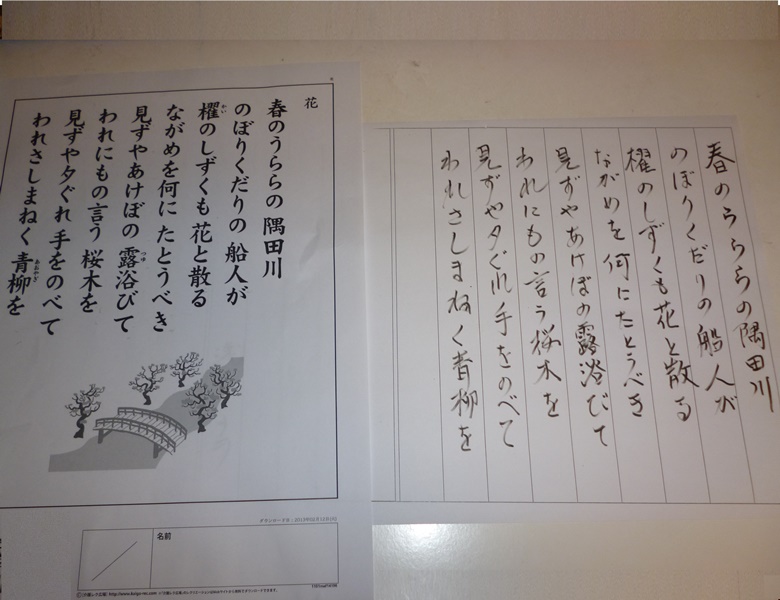 花
春のうららの 隅田川
のぼりくだりの 船人が
かい
櫂のしずくも 花と散る
ながめを何に たとうべき
つゆ
見ずやあけぼの 露浴びて
われにもの言う 桜木を
見ずや夕ぐれ 手をのべて
あおやぎ
われさしまねく 青柳を
名前
春のうららの隅田川
のぼりくだりの船人が
櫂のしずくも花と散る
ながめを何にたとうべき
見ずやあけぼの露浴びて
われにもの言う桜木を
見ずや夕ぐれ手をのべて
われさしまねく青柳を